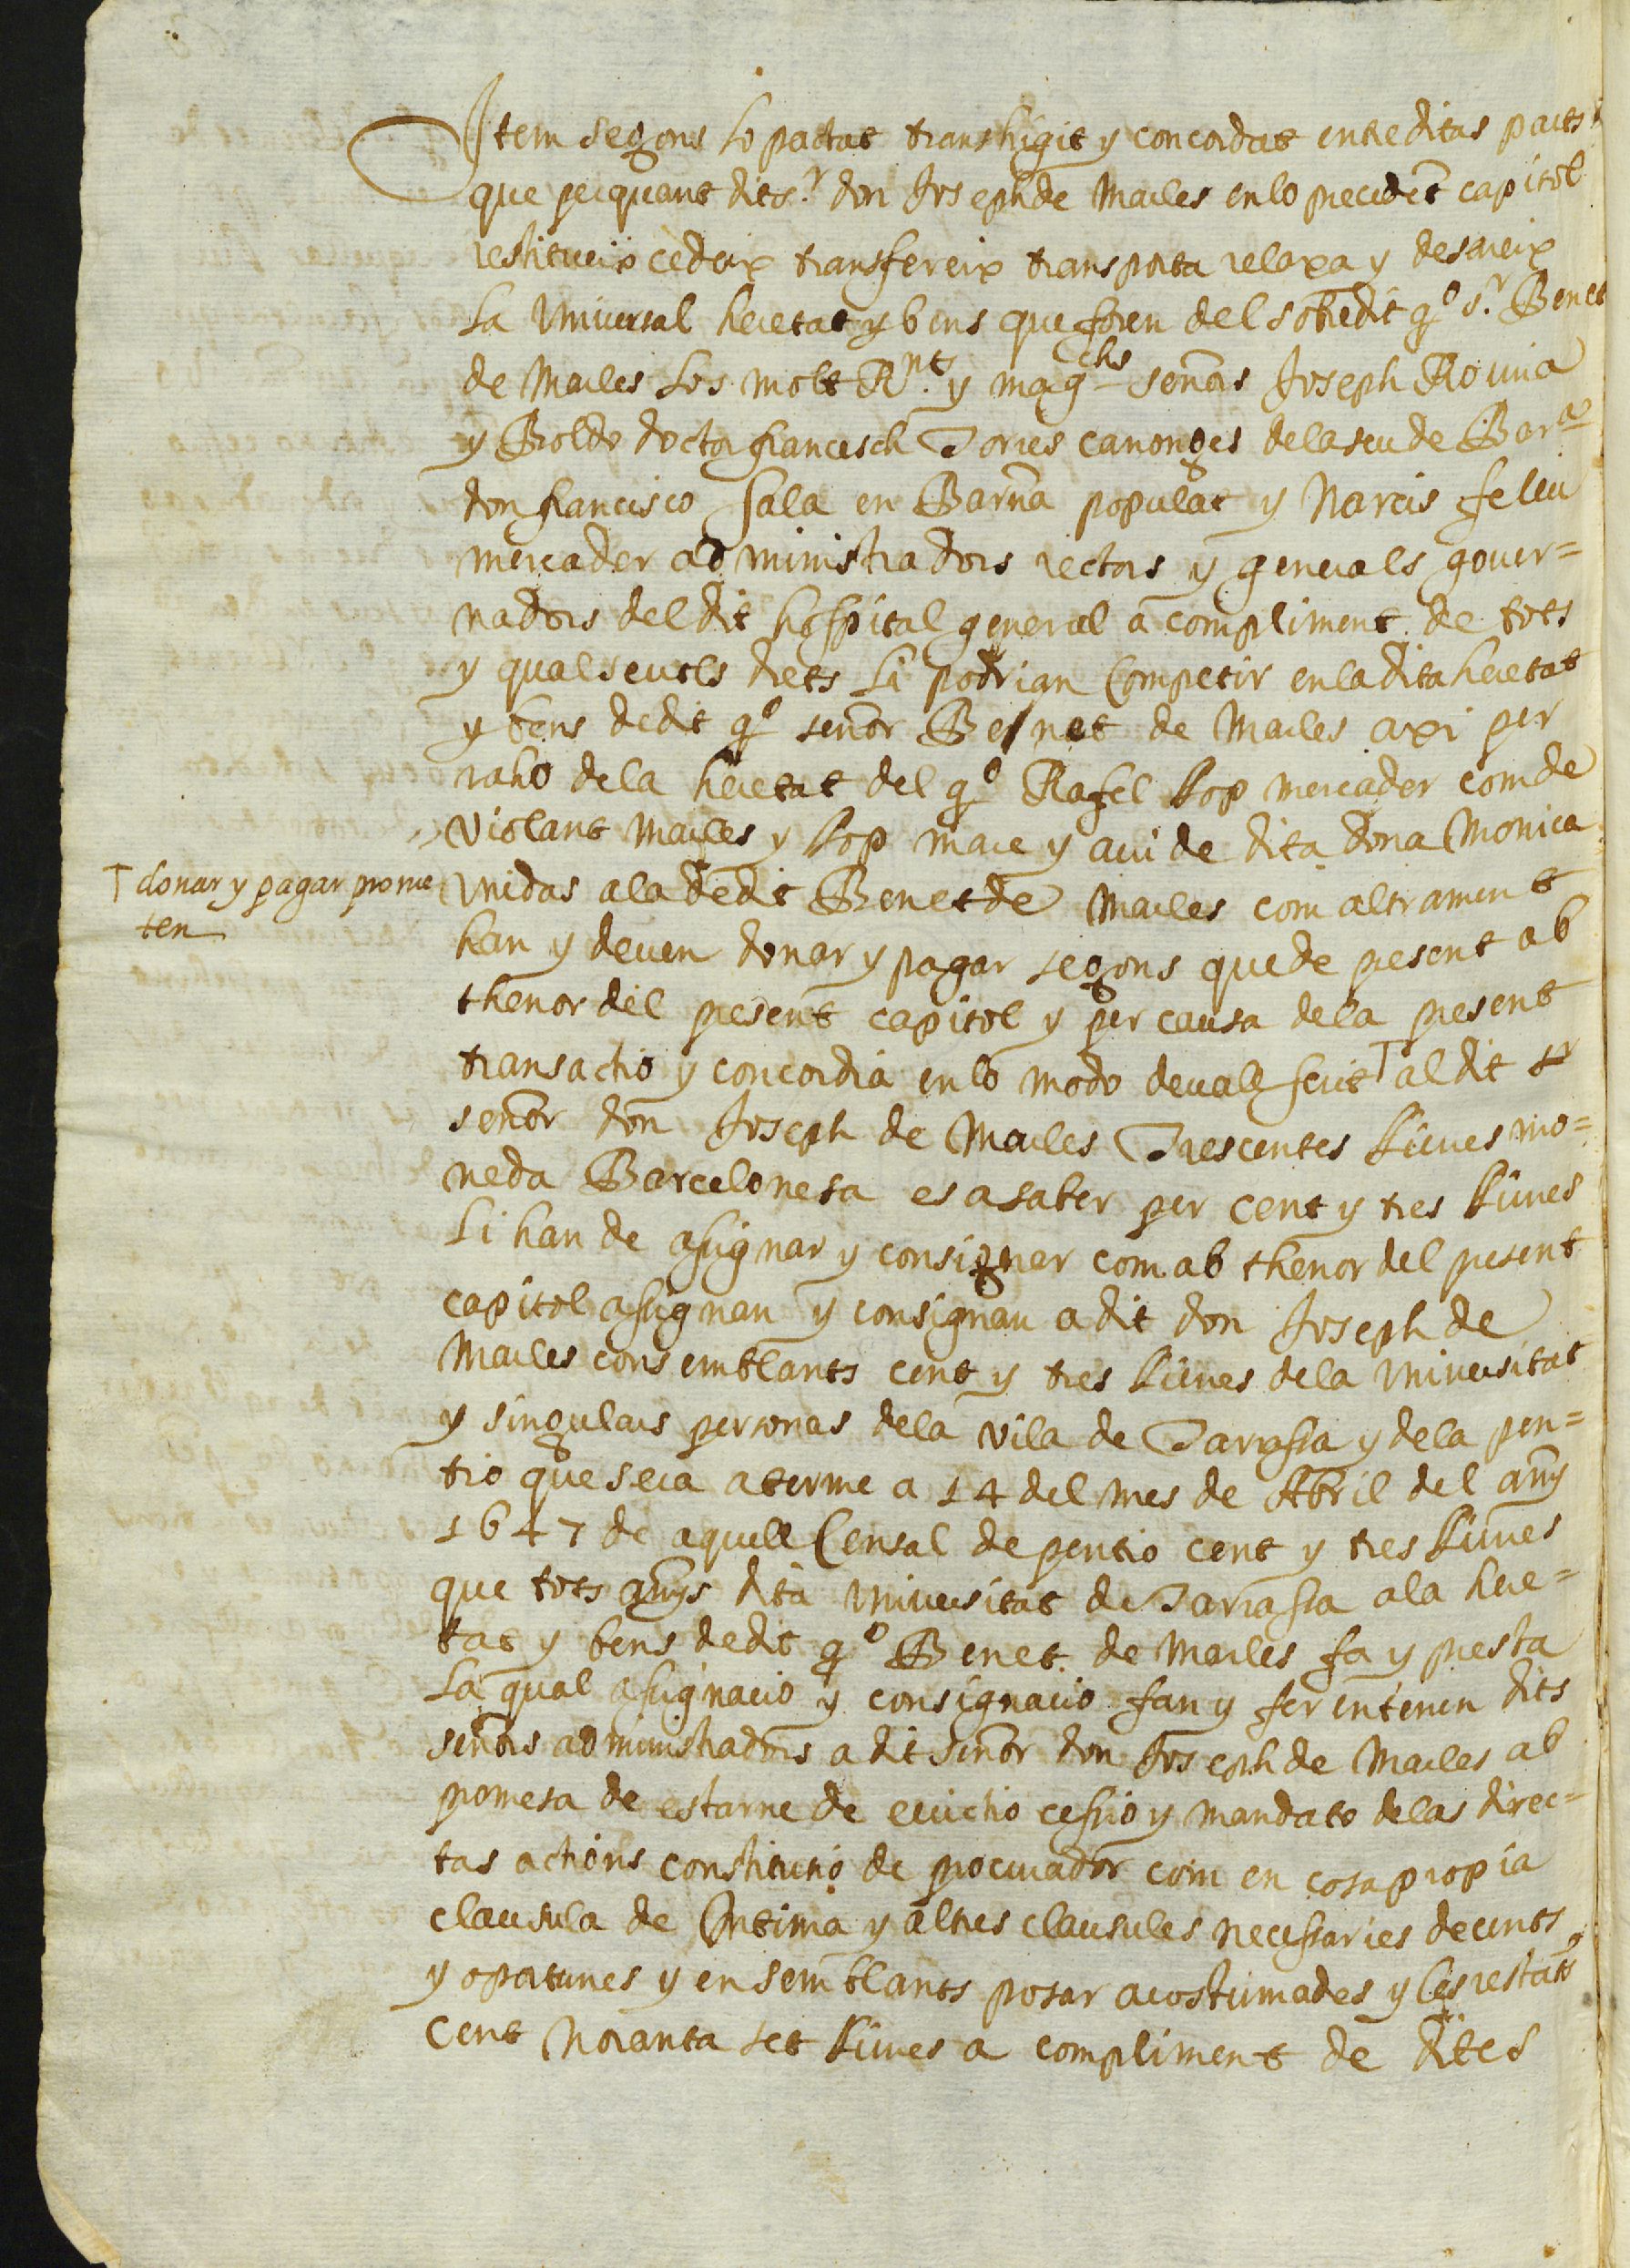 Item segons lo pactat transhigit y concordat entre ditas parts
que perquant dit s.r don Joseph de Marles en lo precedet capitol
restitueix cedeix transfereix transporta relaxa y desaveix
la Universal heretat y bens que foren del sobredit q.o s.r Benet
de Marles los molt R.nts y mag.chs señors Joseph Rovira
y Boldo doctor francesch Torres canonges dela seu de Bar.na
don francisco sala en Barna populat y Narcis feliu
mercader administradors rectors y generals gover=
nadors del dit hospital general a compliment de tots
y qualsevols drets li podrian Competir en la dita heretat
y bens de dit q.o señor Benet de Marles axi per
raho dela heretat del q.o Rafel Llop mercader com de
Violant Marles y Llop mare y avi de dita dona Monica
T donar y pagar prome
ten
Unidas ala de dit Benet de Marles com altrament
han y deuen donar y pagar segons que de present ab
thenor del present capitol y per causa dela present
transactio y concordia en lo modo devall scrit T al dit sr
señor don Joseph de Marles Trescentes lliures mo=
neda Barcelonesa es a saber per cent y tres lliures
li han de assignar y consignar com ab thenor del present
capitol assignan y consignan a dit don Joseph de
Marles consemblants cent y tres lliures dela Universitat
y singulars personas dela vila de Tarrassa y dela pen=
tio que sera a terme a 14 del mes de Abril del any
1647 de aquell Censal de pentio cent y tres lliures
que tots anys dita Universitat de Tarrassa ala here=
tat y bens de dit q.o Benet de Marles fa y presta
la qual assignacio y consignacio fan y fer entenen dits
señors administradors a dit señor don Joseph de Marles ab
promesa de estarne de evictio cessio y mandato delas direc=
tas actions constitutio de procurador com en cosa propia
clausula de Intima y altres clausules necessaries decents
y oportunes y en semblants posar acostumades y les restats
Cent Noranta set lliures a compliment de dites